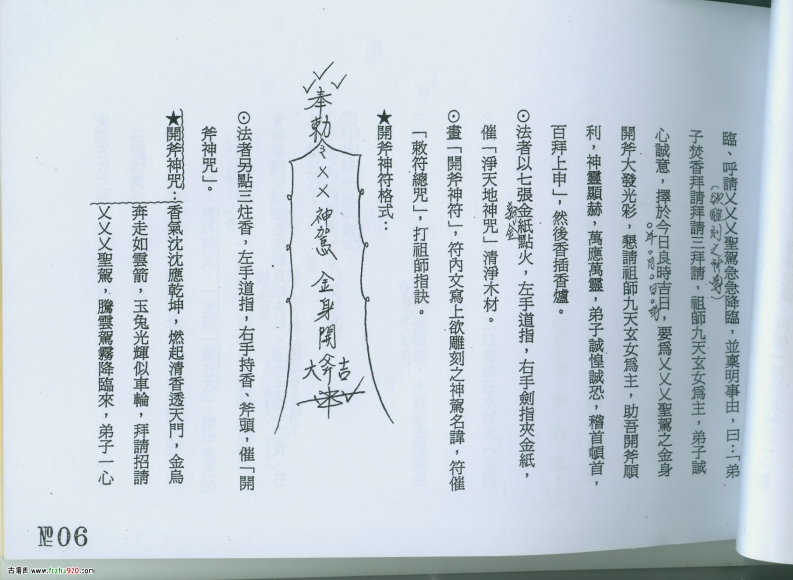 臨、呼請乂乂乂聖駕急急降臨，並稟明事由，曰：「弟
子焚香拜請拜請三拜請，祖師九天玄女為主，弟子誠
心誠意，擇於今日良時吉日，要為乂乂乂聖駕之金身
開斧大發光彩，懇請祖師九天玄女為主，助吾開斧順
利，神靈顯赫，萬應萬靈，弟子誠惶誠恐，稽首頓首，
百拜上申」，然後香插香爐。
⊙法者以七張金紙點火，左手道指，右手劍指夾金紙，
催「淨天地神咒」清淨木材。
⊙畫「開斧神符」，符內文寫上欲雕刻之神駕名諱，符催
「敕符總咒」，打祖師指訣。
★開斧神符格式：
奉勅令××神駕金身開斧大吉
⊙法者另點三炷香，左手道指，右手持香、斧頭，催「開
斧神咒」。
★開斧神咒：香氣沈沈應乾坤，燃起清香透天門，金烏
奔走如雲箭，玉兔光輝似車輪，拜請招請
乂乂乂聖駕，騰雲駕霧降臨來，弟子一心
№06
古籍库 www.fczhu920.com